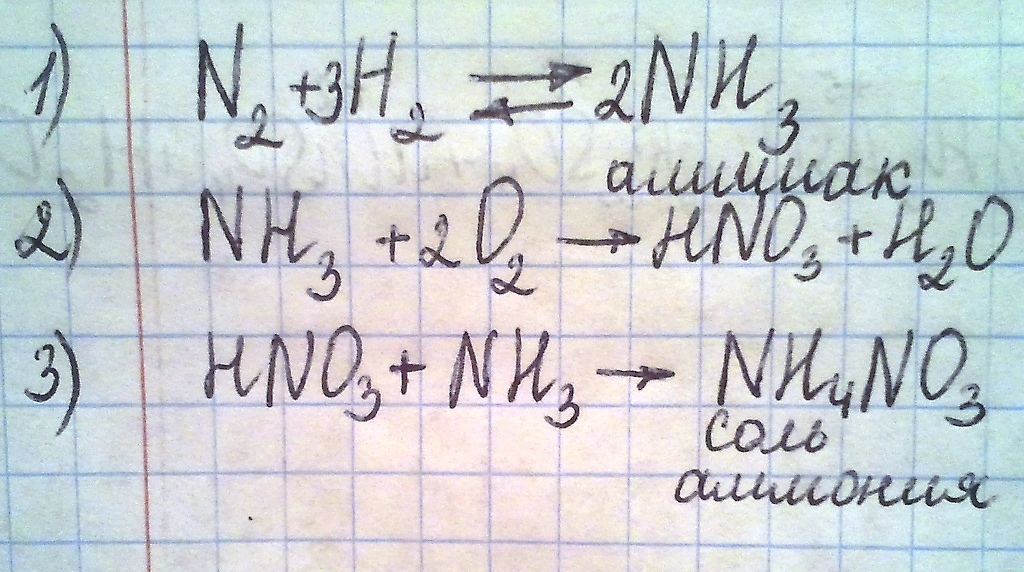 1) N₂ + 3H₂ ⇄ 2NH₃
аммиак
2) NH₃ + 2O₂ → HNO₃ + H₂O
3) HNO₃ + NH₃ → NH₄NO₃
соль
аммония